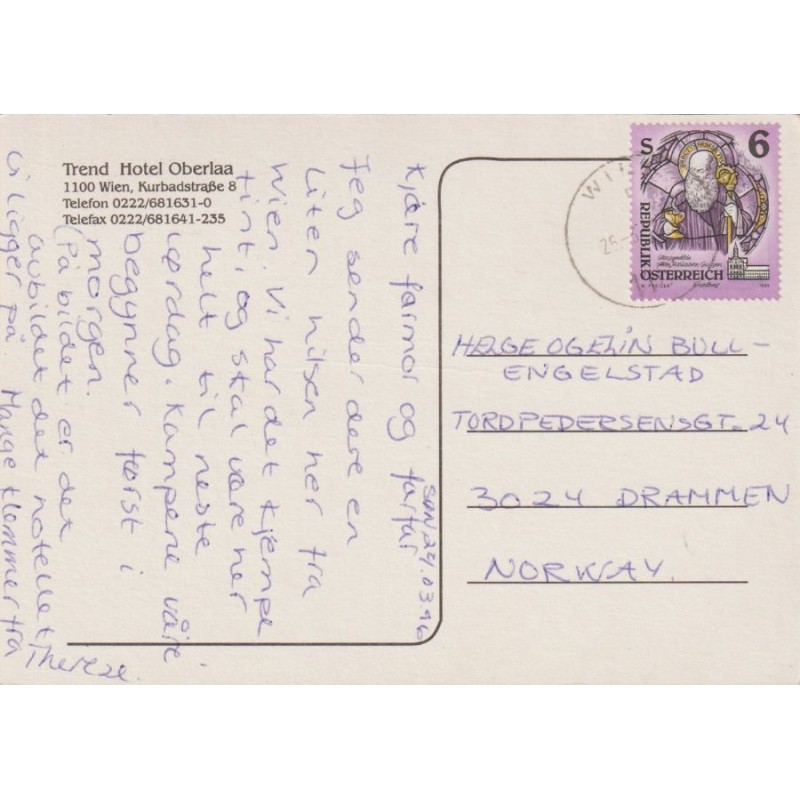 Trend Hotel Oberlaa
1100 Wien, Kurbadstraße 8
Telefon 0222/681631-0
Telefax 0222/681641-235
SØN 24.03.96
Kjære farmor og farfar
Jeg sender dere en
liten hilsen her fra
Wien. Vi har det kjempe
fint, og skal være her
helt til neste
lørdag. Kampene våre
begynner først i
morgen.
(På bildet er det
avbildet det hotellet
vi ligger på. Mange klemmer fra
Therese.
S 6
REPUBLIK
ÖSTERREICH
WI
25
HELGE OG ELIN BULL-
ENGELSTAD
TORD PEDERSENSGT. 24
3024 DRAMMEN
NORWAY.